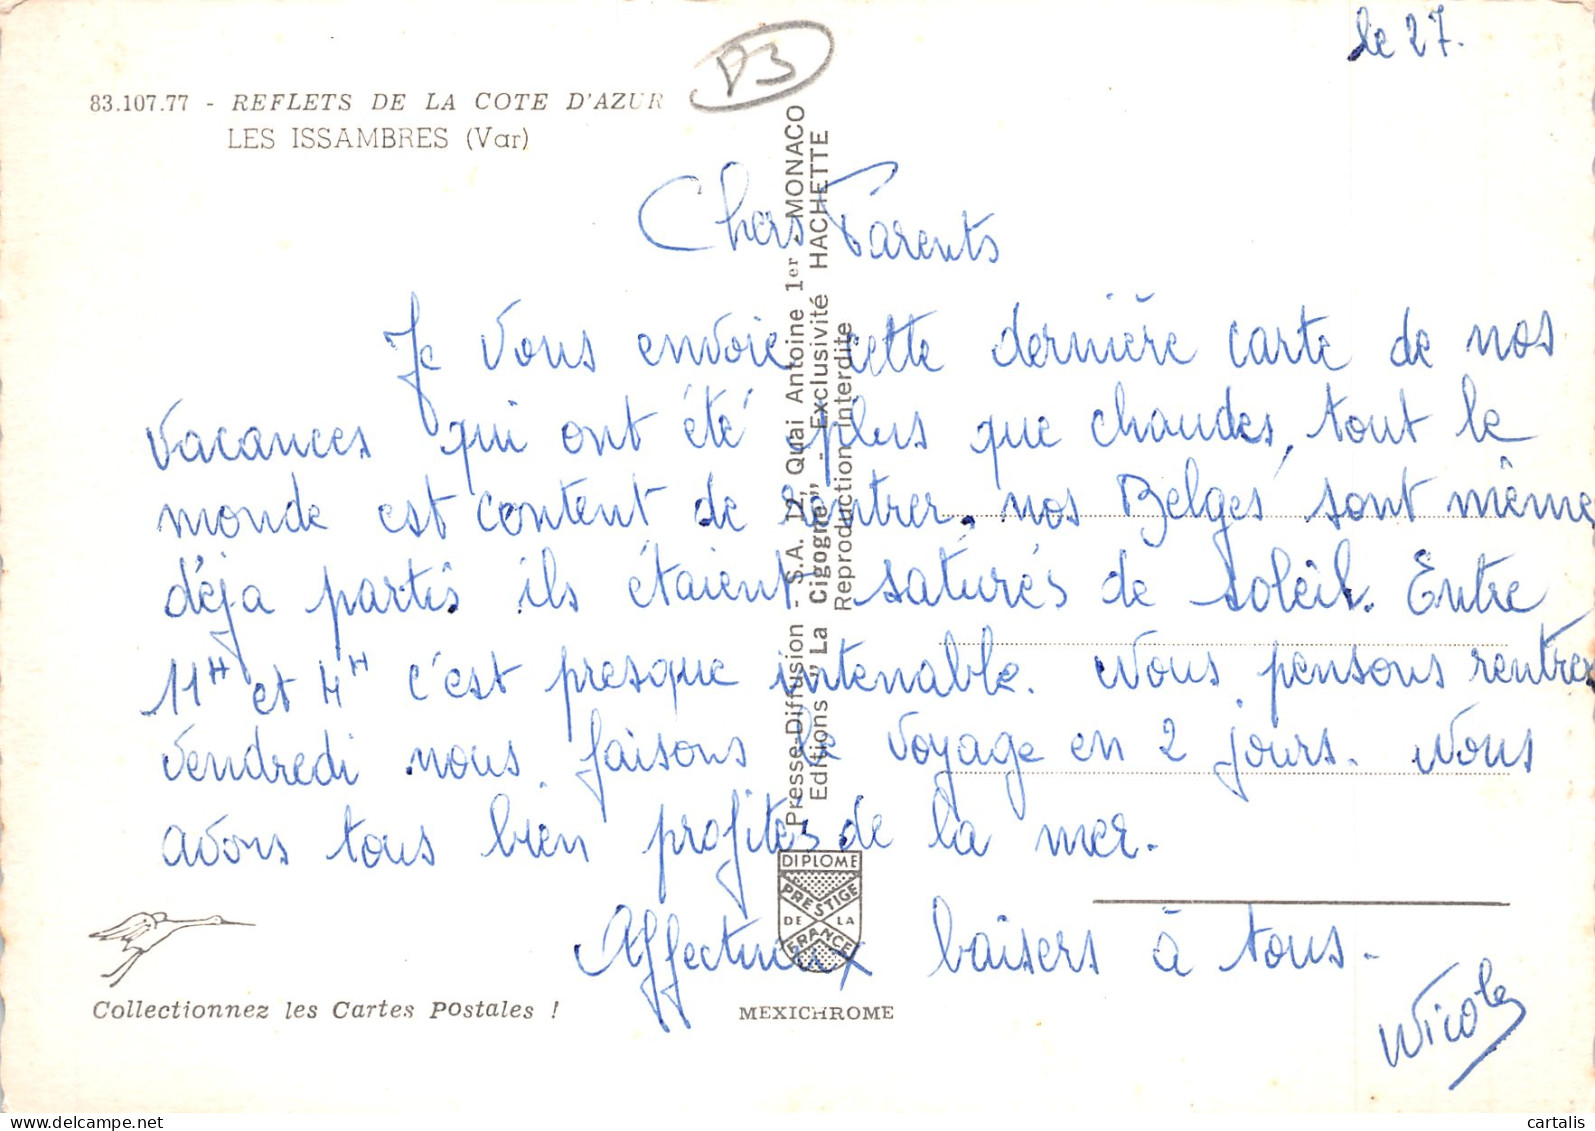 le 27.
P3
83.107.77 - REFLETS DE LA COTE D'AZUR
LES ISSAMBRES (Var)
Chers Parents
Je vous envoie cette dernière carte de nos
vacances qui ont été plus que chaudes, tout le
monde est content de rentrer, nos Belges sont même
déja partis ils étaient saturés de soleil. Entre
11H et 4H c'est presque intenable. Nous pensons rentrer
vendredi nous faisons le voyage en 2 jours. Nous
avons tous bien profités de la mer.
Affectueux baisers à tous.
Nicole
Presse-Diffusion - S.A. 12, Quai Antoine 1er - MONACO
Editions "La Cigogne" - Exclusivité HACHETTE
Reproduction Interdite
DIPLOME
PRESTIGE
DE LA
FRANCE
Collectionnez les Cartes Postales !
MEXICHROME
delcampe.net
cartalis